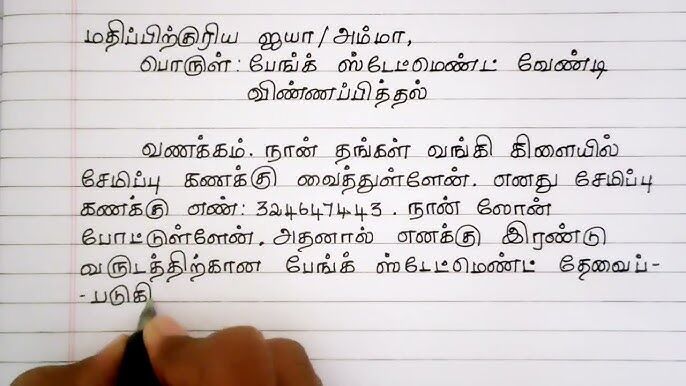 மதிப்பிற்குரிய ஐயா/அம்மா,
பொருள்: பேங்க் ஸ்டேட்மெண்ட் வேண்டி
விண்ணப்பித்தல்
வணக்கம். நான் தங்கள் வங்கி கிளையில்
சேமிப்பு கணக்கு வைத்துள்ளேன். எனது சேமிப்பு
கணக்கு எண்: 324647443. நான் லோன்
போட்டுள்ளேன். அதனால் எனக்கு இரண்டு
வருடத்திற்கான பேங்க் ஸ்டேட்மெண்ட் தேவைப்-
-படுகி